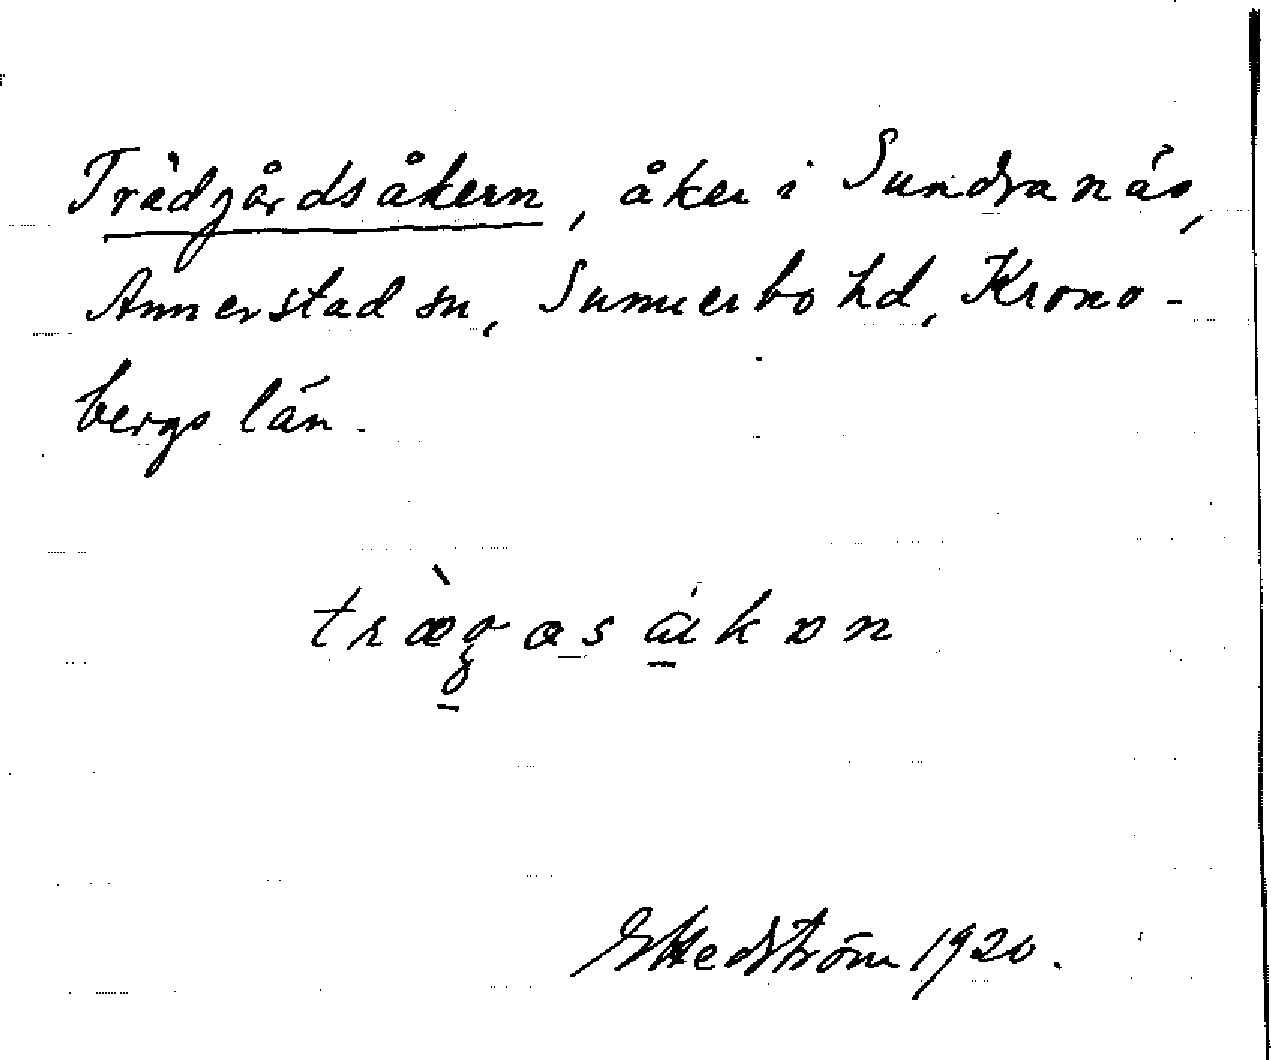 Trädgårdsåkern, åker i Sundranäs,
Annerstad sn, Sunnerbo hd, Krono-
bergs län.
trægasákɒn
G Hedström 1920.